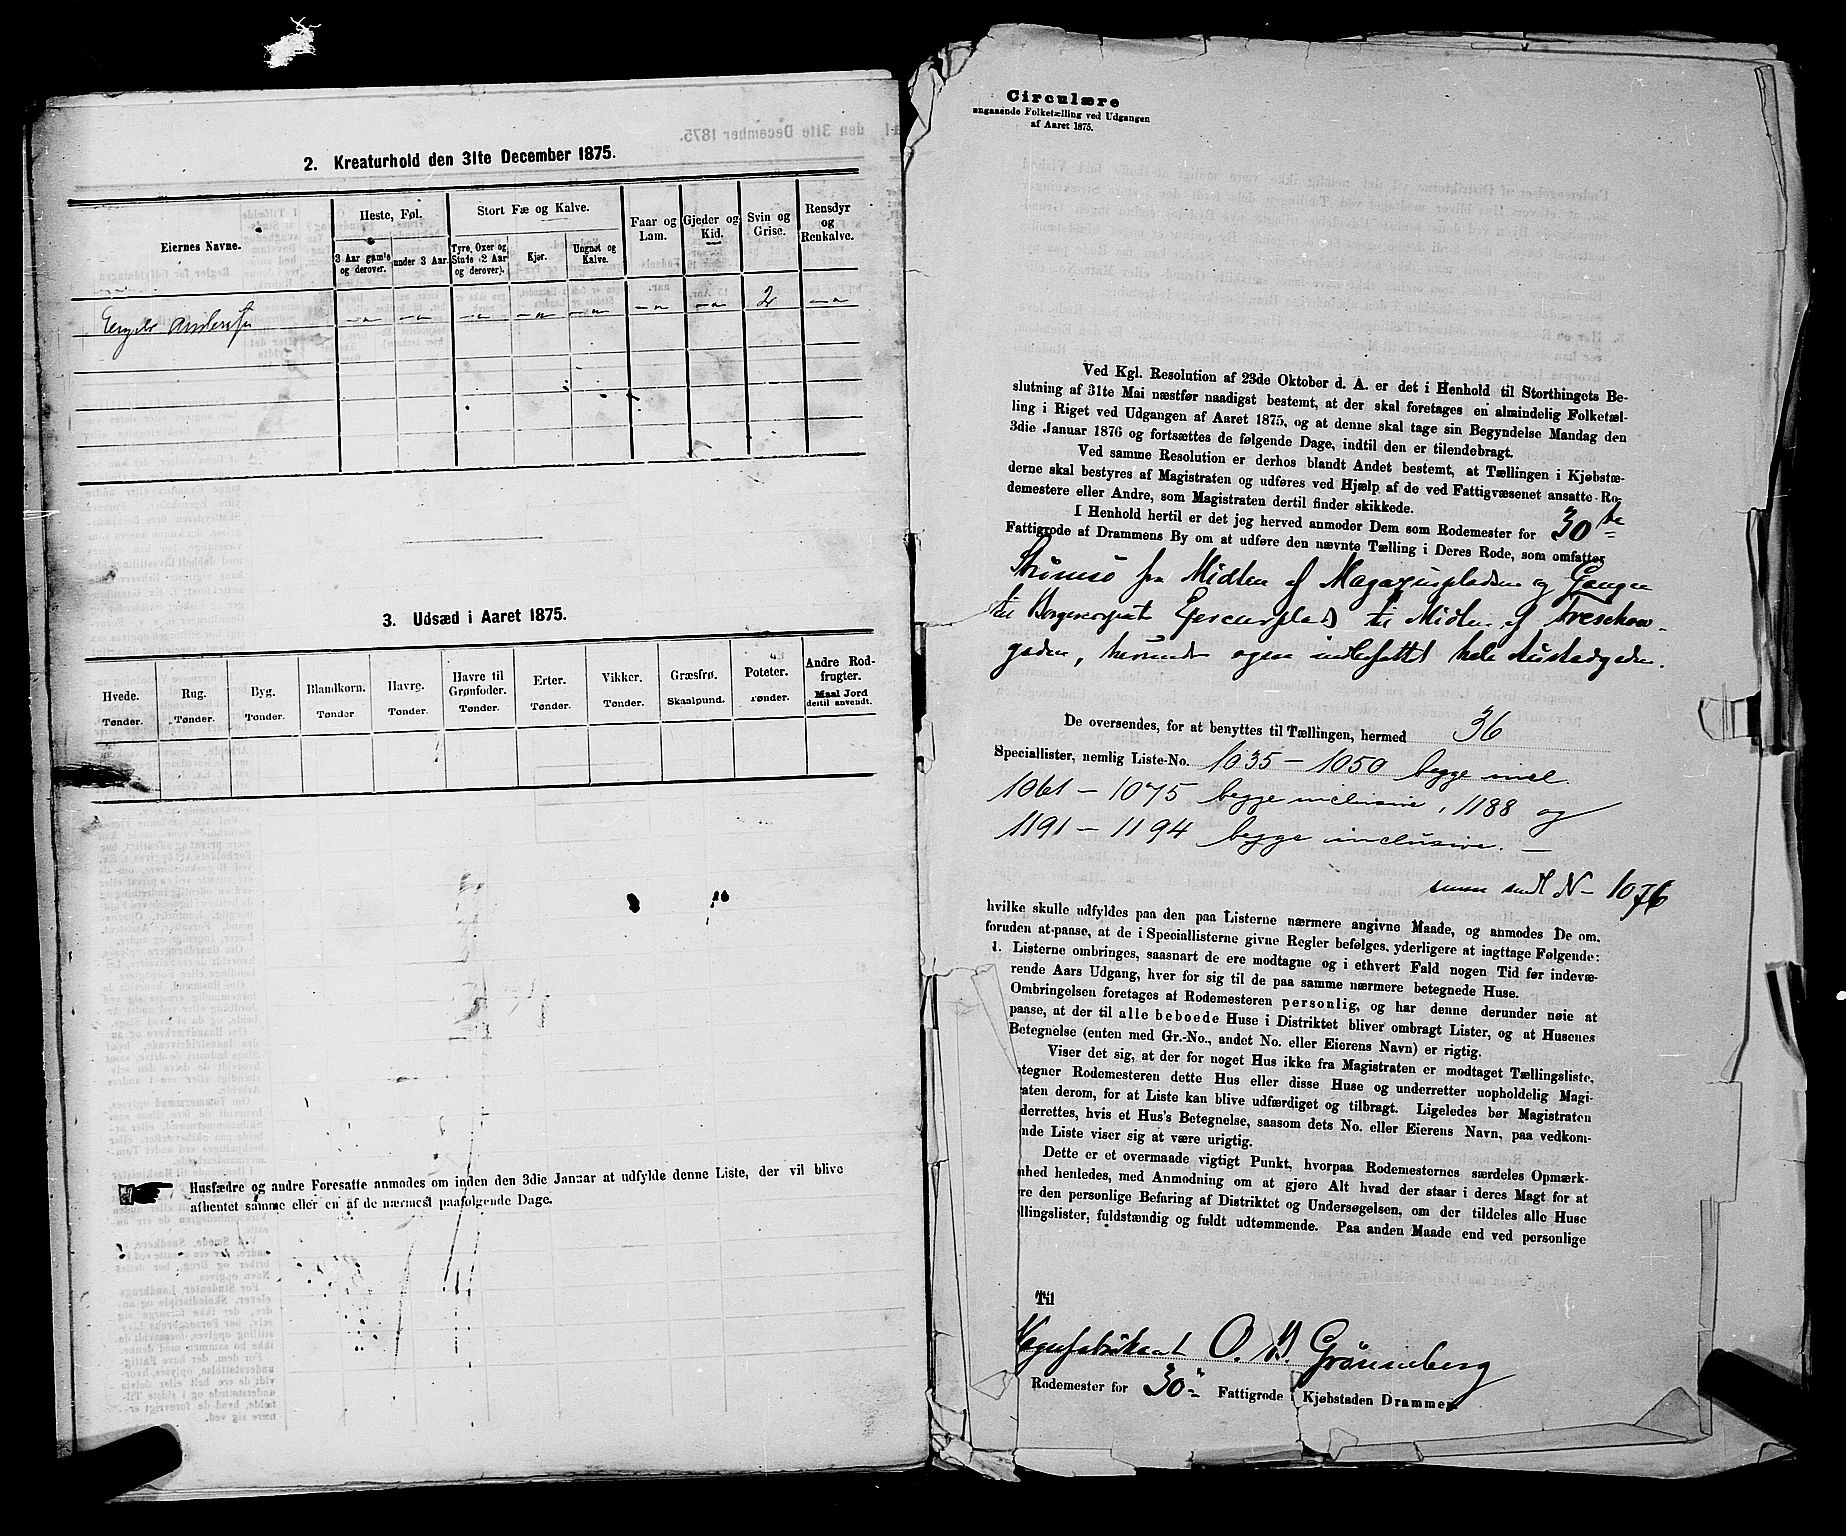 2. Kreaturhold den 31te December 1875.
Eiernes Navne.
Heste, Føl.
3 Aar gamle og derover.
under 3 Aar.
Stort Fæ og Kalve.
Tyre, Oxer og Stude (2 Aar og derover).
Kjør.
Ungnøt og Kalve.
Faar og Lam.
Gjeder og Kid.
Svin og Grise.
Rensdyr og Renkalve.
Anderssen — — — — — — — 2 —
3. Udsæd i Aaret 1875.
Hvede. Tønder.
Rug. Tønder.
Byg. Tønder.
Blandkorn. Tønder
Havre. Tønder.
Havre til Grønfoder. Tønder.
Erter. Tønder.
Vikker. Tønder.
Græsfrø. Skaalpund.
Poteter. Tønder.
Andre Rodfrugter. Maal Jord dertil anvendt.
Husfædre og andre Foresatte anmodes om inden den 3die Januar at udfylde denne Liste, der vil blive
afhentet samme eller en af de nærmest paafølgende Dage.
Circulære
angaaende Folketælling ved Udgangen
af Aaret 1875.
Ved Kgl. Resolution af 23de Oktober d. A. er det i Henhold til Storthingets Be-
slutning af 31te Mai næstfør naadigst bestemt, at der skal foretages en almindelig Folketæl-
ling i Riget ved Udgangen af Aaret 1875, og at denne skal tage sin Begyndelse Mandag den
3die Januar 1876 og fortsættes de følgende Dage, indtil den er tilendebragt.
Ved samme Resolution er derhos blandt Andet bestemt, at Tællingen i Kjøbstæ-
derne skal bestyres af Magistraten og udføres ved Hjælp af de ved Fattigvæsenet ansatte Ro-
demestere eller Andre, som Magistraten dertil finder skikkede.
I Henhold hertil er det jeg herved anmoder Dem som Rodemester for 30te
Fattigrode af Drammens By om at udføre den nævnte Tælling i Deres Rode, som omfatter
Strømsø fra Midten af Magazinpladsen og Gangen
til Borgercorpsets Exerceerplads til Midten af Treschow-
gaden, herunder ogsaa indbefattet hele Austadgaden.
De oversendes, for at benyttes til Tællingen, hermed 36
Speciallister, nemlig Liste-No. 1035 – 1050 begge incl.
1061 – 1075 begge inclusive, 1188 og
1191 – 1194 begge inclusive. –
samt No 1076
hvilke skulle udfyldes paa den paa Listerne nærmere angivne Maade, og anmodes De om,
foruden at paase, at de i Speciallisterne givne Regler befølges, yderligere at iagttage Følgende:
1. Listerne ombringes, saasnart de ere modtagne og i ethvert Fald nogen Tid før indevæ-
rende Aars Udgang, hver for sig til de paa samme nærmere betegnede Huse.
Ombringelsen foretages af Rodemesteren personlig, og har denne derunder nøie at
paase, at der til alle beboede Huse i Distriktet bliver ombragt Lister, og at Husenes
Betegnelse (enten med Gr.-No., andet No. eller Eierens Navn) er rigtig.
Viser det sig, at der for noget Hus ikke fra Magistraten er modtaget Tællingsliste,
tegner Rodemesteren dette Hus eller disse Huse og underretter uopholdelig Magi-
raten derom, for at Liste kan blive udfærdiget og tilbragt. Ligeledes bør Magistraten
derrettes, hvis et Hus's Betegnelse, saasom dets No. eller Eierens Navn, paa vedkom-
nde Liste viser sig at være urigtig.
Dette er et overmaade vigtigt Punkt, hvorpaa Rodemesternes særdeles Opmærk-
nhed henledes, med Anmodning om at gjøre Alt hvad der staar i deres Magt for at
re den personlige Befaring af Distriktet og Undersøgelsen, om der tildeles alle Huse
llingslister, fuldstændig og fuldt udtømmende. Paa anden Maade end ved personlige
Til
Vognfabrikant O. B. Grønneberg
Rodemester for 30te Fattigrode i Kjøbstaden Drammen.